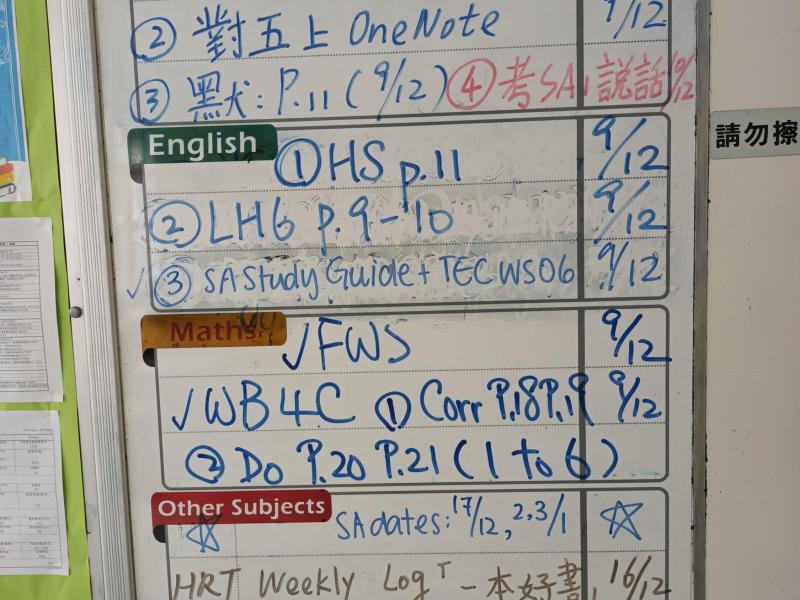 ② 對五上 OneNote 9/12
③ 黑犬: P.11 (9/12) ④ 考SA1說話 10/12
English
① HS p.11 9/12
請勿擦
② LH6 P.9-10 9/12
✓ ③ SA Study Guide + TEC WS06 9/12
Maths
✓ FWS 9/12
✓ WB 4C ① Corr P.18 P.19 9/12
② Do P.20 P.21 (1 to 6)
Other Subjects
☆ SA dates: 17/12, 2,3/1 ☆
HRT Weekly Log T - 本好書, 16/12